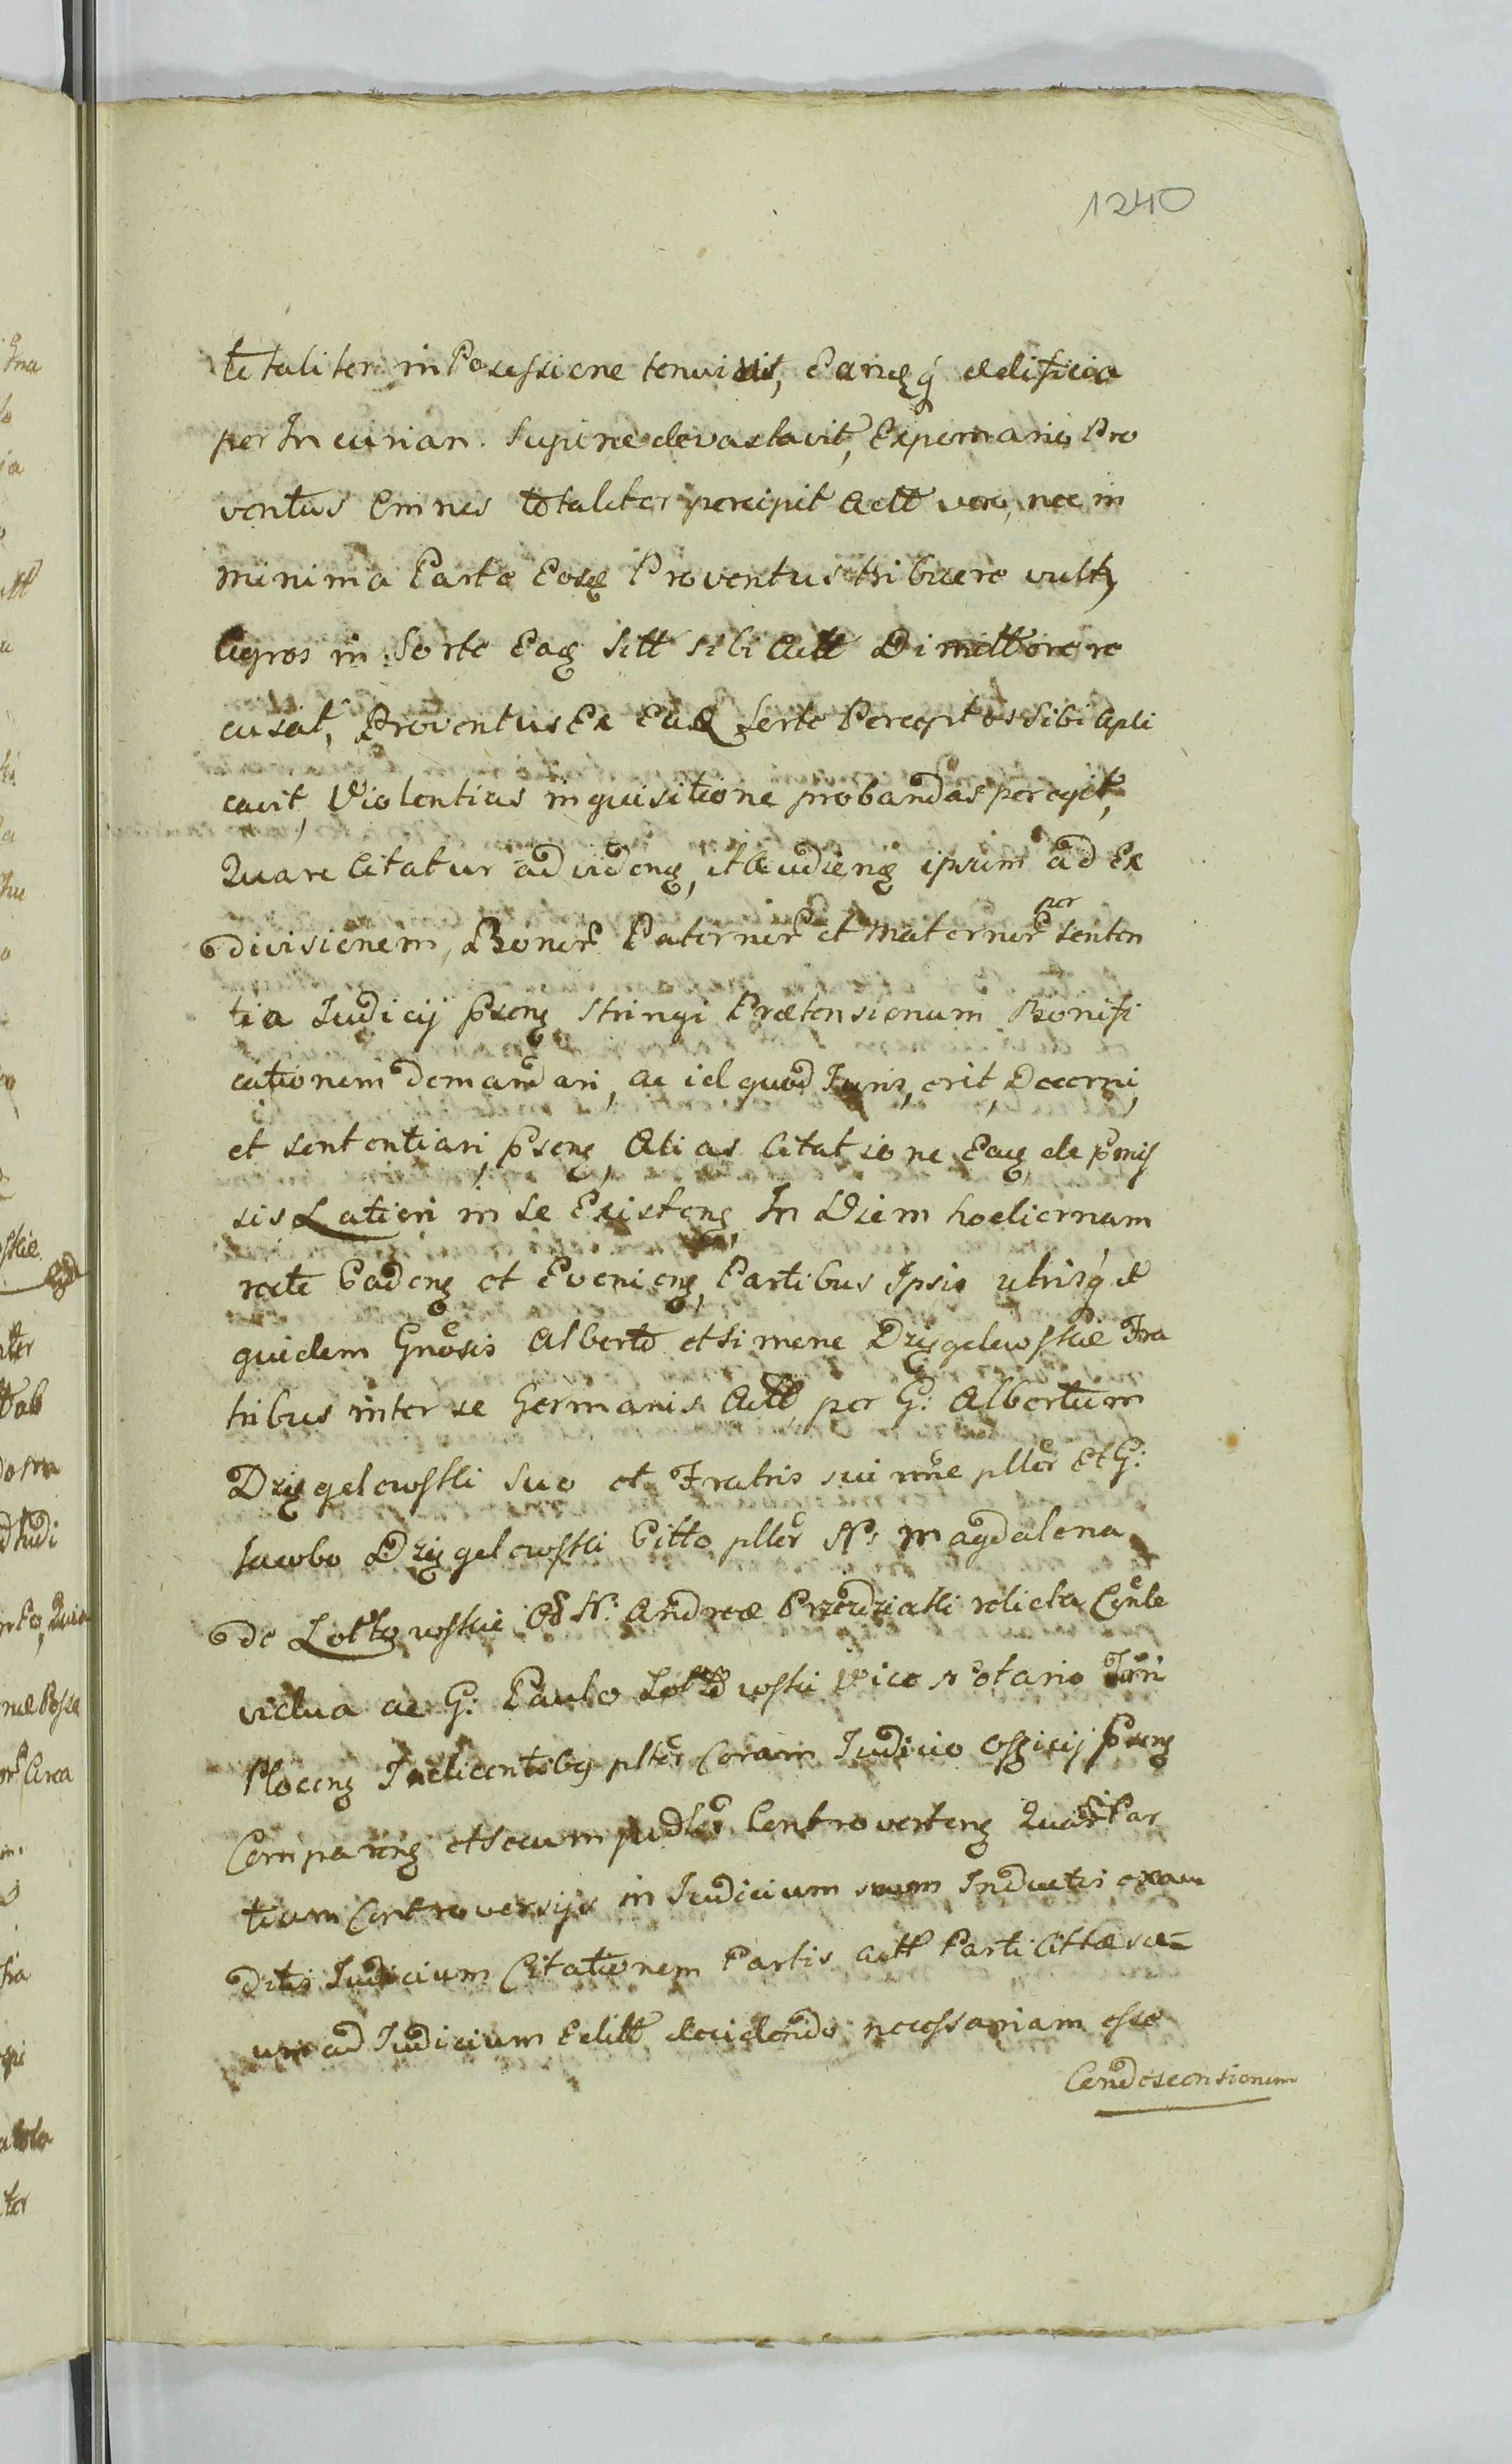 1240
totaliter in Possessione tenuit, Eamq; aedificia
per Incuriam Supine devastavit, Expomario Pro
ventus omnes totaliter percipit Actt vero, nec in
minima Parte Eosq Proventus tribuere vult,
Agros in Sorte Eaq Sitt sibi Actt Dimittere re
cusat, Proventus Ex Eaq Sorte Perceptos Sibi apli
cavit, Violentias inquisitione probandas peregit,
Quare Citatur ad videng, et Audieng ipsum ad Ex
divisionem, Bonor Paternor et Maternor per senten
tia Judicij pseng Stringi Praetensionum Bonifi
cationem demandari, ac id quod Juris, erit, Decerni,
et sententiari, pseng, Alias Citatione Eaq de pmis
sis Latiori in se Existeng In Diem hodiernam
recte Cadeng et Evenieng, Partibus Ipsis utrisq; et
quidem Gnosis Alberto et Simone Dzięgelewskie Fra
tribus inter se Germanis Actt, per G: Albertum
Dzięgelewski suo et Fratris sui nne pller Et G:
Jacobo Dzięgelewski Citto pller N: Magdalena
de Lottowskie Oĝ N: Andreae Przedziacki relicta Cgnle
vidua ac G: Paulo Lottowski Vice Notario Trri
Ploceng Indicentibq pller Coram Judicio Officij pseng
Compareng et secum judler Controverteng Quar Par
tium Controversijs in Judicium suum Inductis exau
ditis Judicium Citationem Partis Actt Parti Cittae sa=
um ad Judicium Editt decidendo necessariam esse
Condescensionem